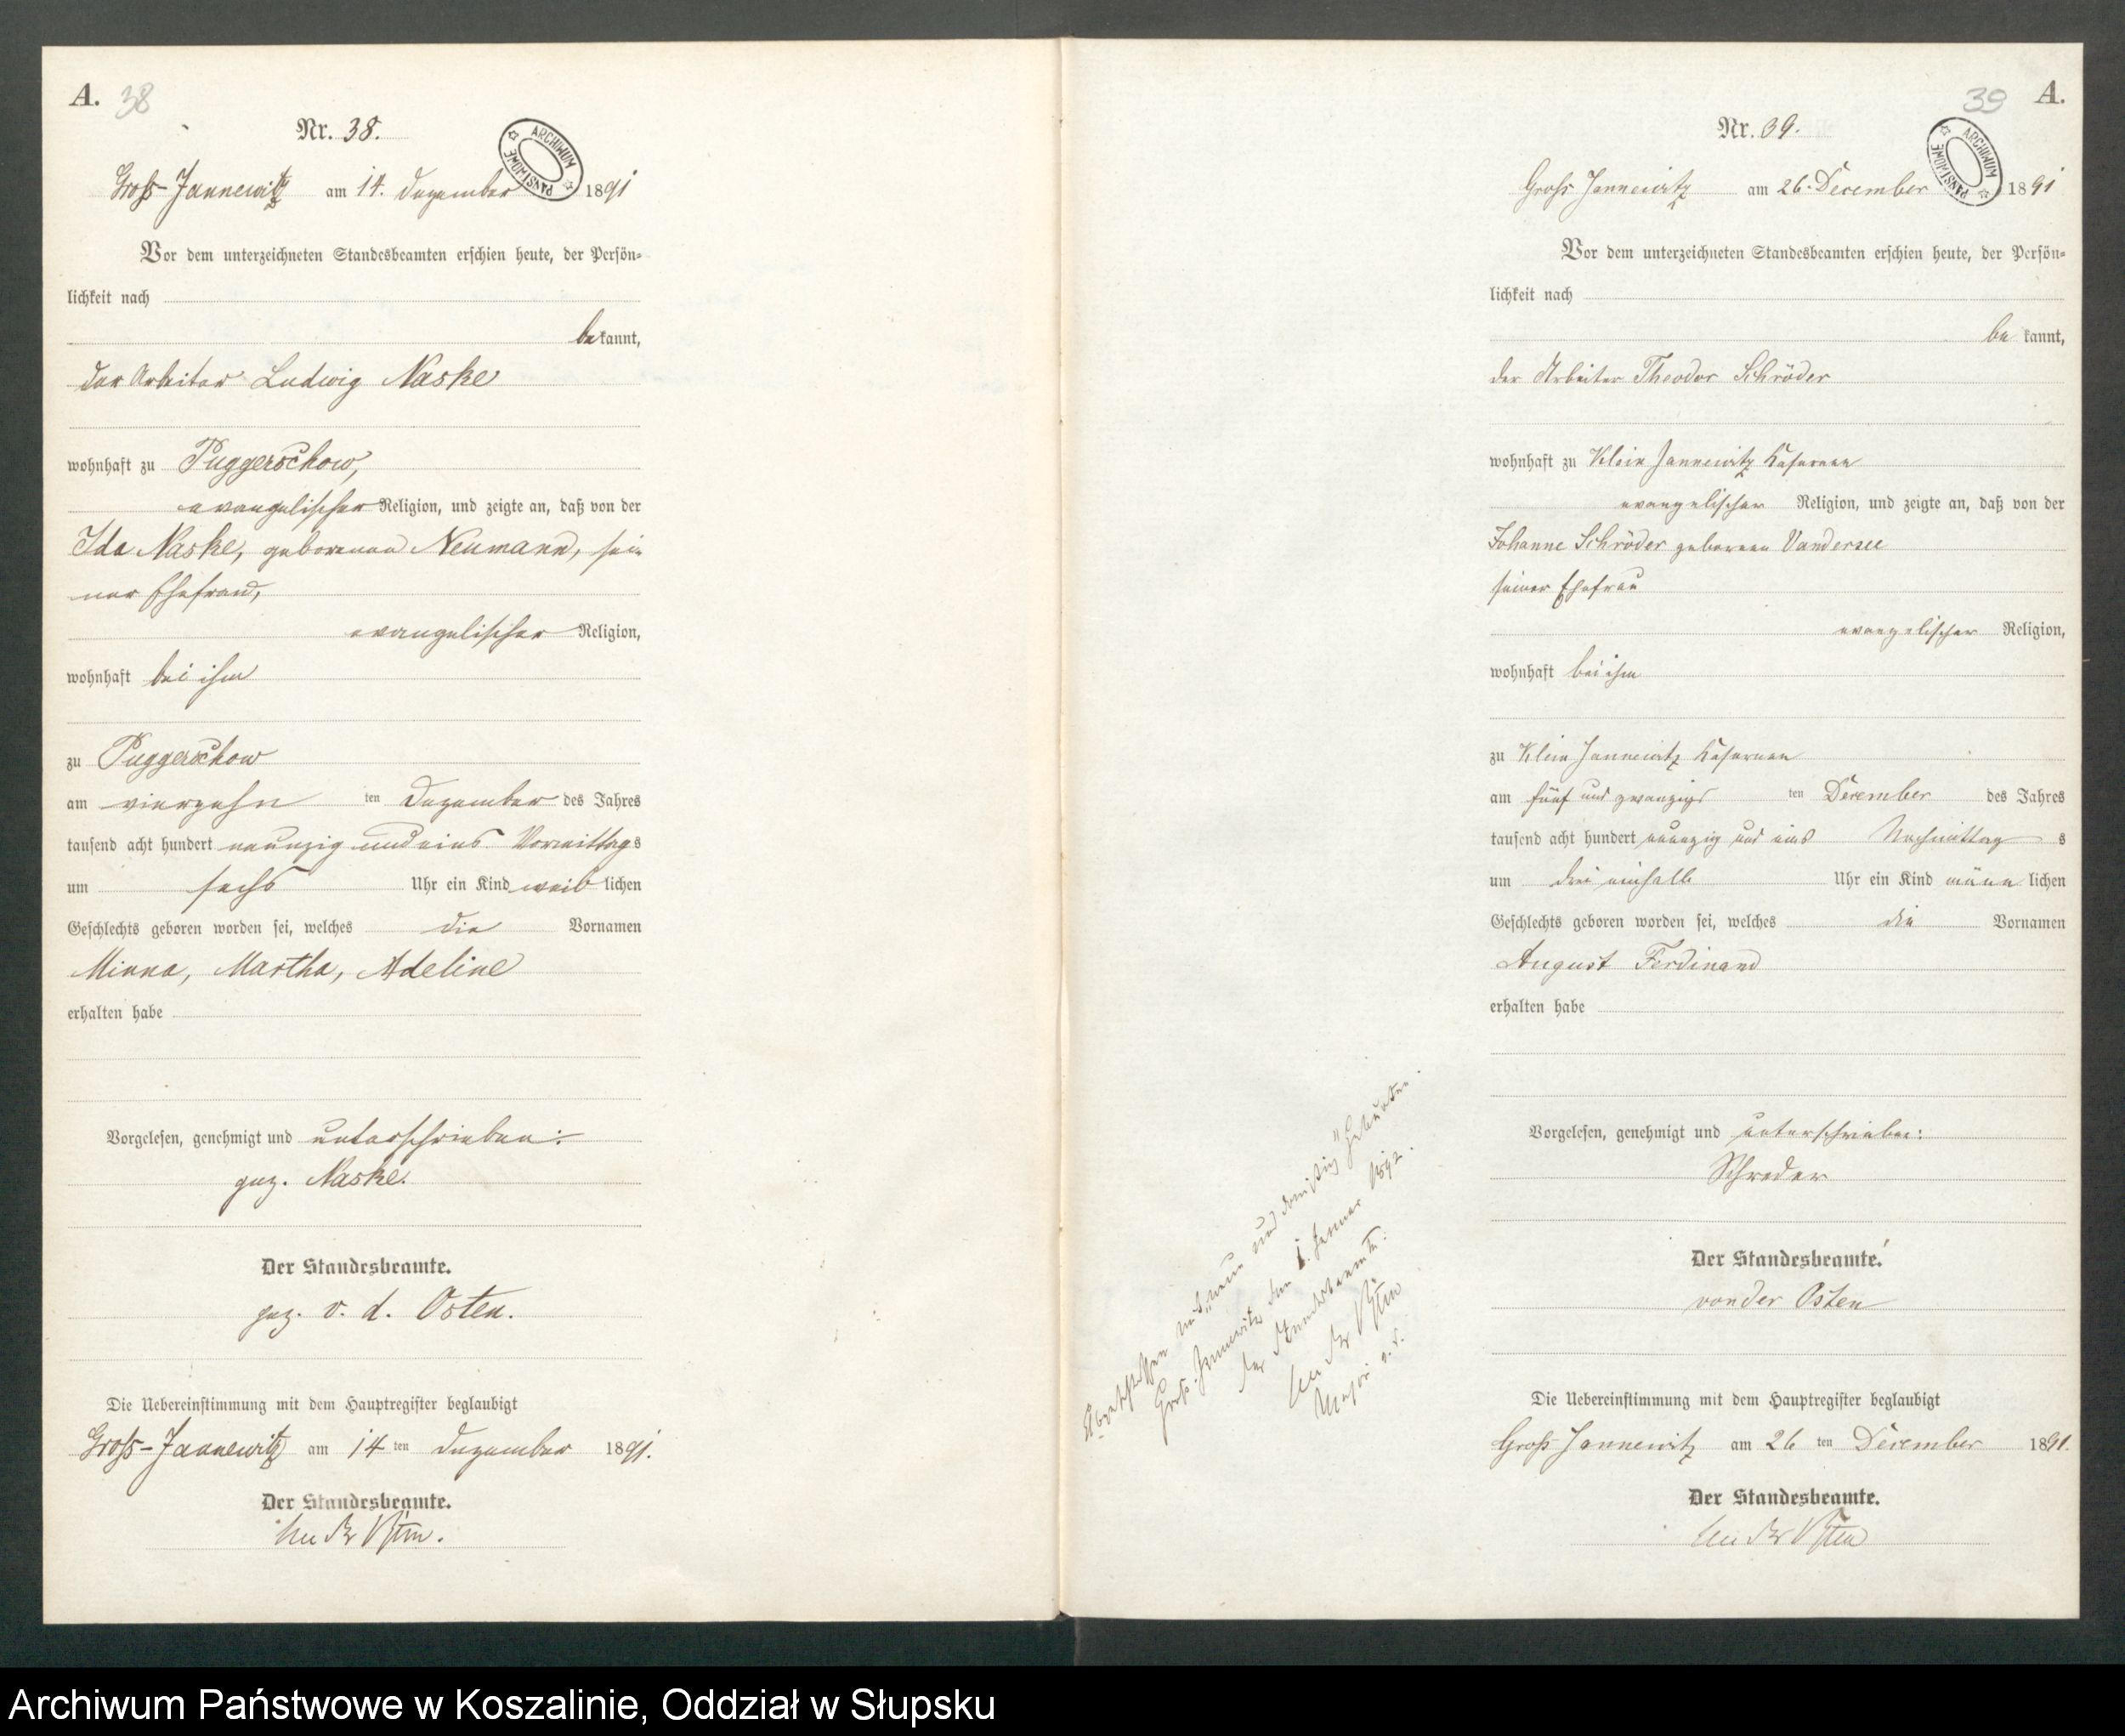 A. 38
Nr. 38.
ARCHIWUM PAŃSTWOWE
Gross-Jannewitz am 14. Dezember 1891
Vor dem unterzeichneten Standesbeamten erschien heute, der Persön-
lichkeit nach
bekannt,
der Arbeiter Ludwig Naske
wohnhaft zu Puggerschow,
evangelischer Religion, und zeigte an, daß von der
Ida Naske, geborenen Neumann, sei-
ner Ehefrau,
evangelischer Religion,
wohnhaft bei ihm
zu Puggerschow
am vierzehn ten Dezember des Jahres
tausend acht hundert neunzig und eins Vormittags
um sechs Uhr ein Kind weiblichen
Geschlechts geboren worden sei, welches die Vornamen
Minna, Martha, Adeline
erhalten habe
Vorgelesen, genehmigt und unterschrieben:
gez. Naske.
Der Standesbeamte.
gez. v. d. Osten.
Die Uebereinstimmung mit dem Hauptregister beglaubigt
Gross-Jannewitz am 14 ten Dezember 1891.
Der Standesbeamte.
von der Osten.
39 A.
Nr. 39.
ARCHIWUM PAŃSTWOWE
Gross Jannewitz am 26. December 1891
Vor dem unterzeichneten Standesbeamten erschien heute, der Persön-
lichkeit nach
be kannt,
der Arbeiter Theodor Schröder
wohnhaft zu Klein Jannewitz Kasernen
evangelischer Religion, und zeigte an, daß von der
Johanne Schröder geborenen Vandersee
seiner Ehefrau
evangelischer Religion,
wohnhaft bei ihm
zu Klein Jannewitz Kasernen
am fünf und zwanzigs ten December des Jahres
tausend acht hundert neunzig und eins Nachmittag s
um drei einhalb Uhr ein Kind männ lichen
Geschlechts geboren worden sei, welches die Vornamen
August Ferdinand
erhalten habe
Vorgelesen, genehmigt und unterschrieben:
Schreder
Der Standesbeamte.
von der Osten
Die Uebereinstimmung mit dem Hauptregister beglaubigt
Gross Jannewitz am 26 ten December 1891.
Der Standesbeamte.
von der Osten
Abgeschlossen mit "neun und dreißig" Geburten.
Gross-Jannewitz den 1. Januar 1892.
Der Standesbeamte.
von der Osten
Major a. D.
Archiwum Państwowe w Koszalinie, Oddział w Słupsku